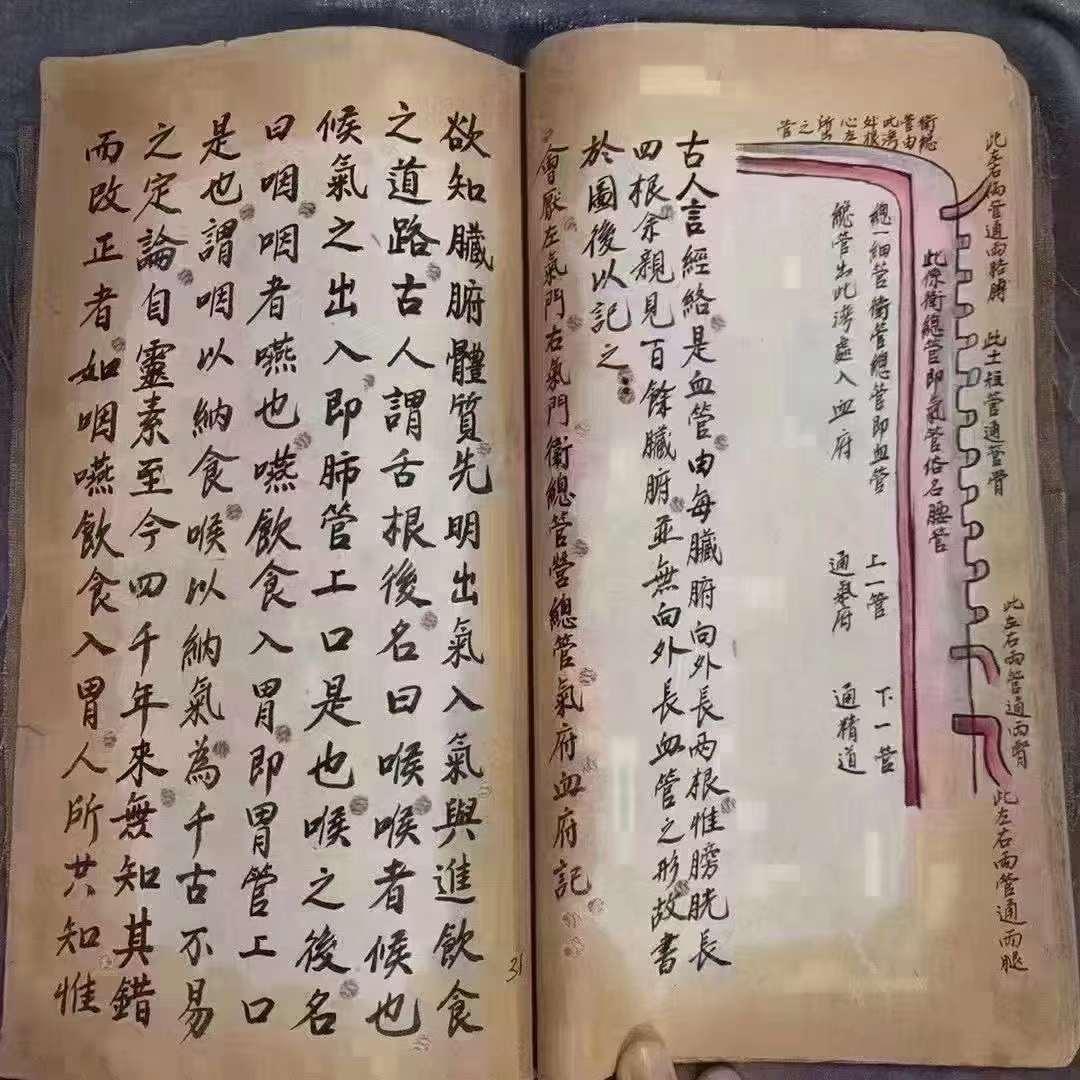 此左右兩管通兩胳膊
此土柱管通脊骨
此左右兩管通兩腎
此左右兩管通兩腿
衛總
管由
此灣
外根
心左
所出
之
管
此係衛總管即氣管俗名腰管
總一細管衛管總管即血管
總管出此灣處入血府
上一管
通氣府
下一管
通精道
古人言經絡是血管由每臟腑向外長兩根惟膀胱長
四根余親見百餘臟腑並無向外長血管之形故書
於圖後以記之
會厭左氣門右氣門衛總管營總管氣府血府記
31
欲知臟腑體質先明出氣入氣與進飲食
之道路古人謂舌根後名曰喉喉者候也
候氣之出入即肺管上口是也喉之後名
曰咽咽者嚥也嚥飲食入胃即胃管上口
是也謂咽以納食喉以納氣為千古不易
之定論自靈素至今四千年來無知其錯
而改正者如咽嚥飲食入胃人所共知惟